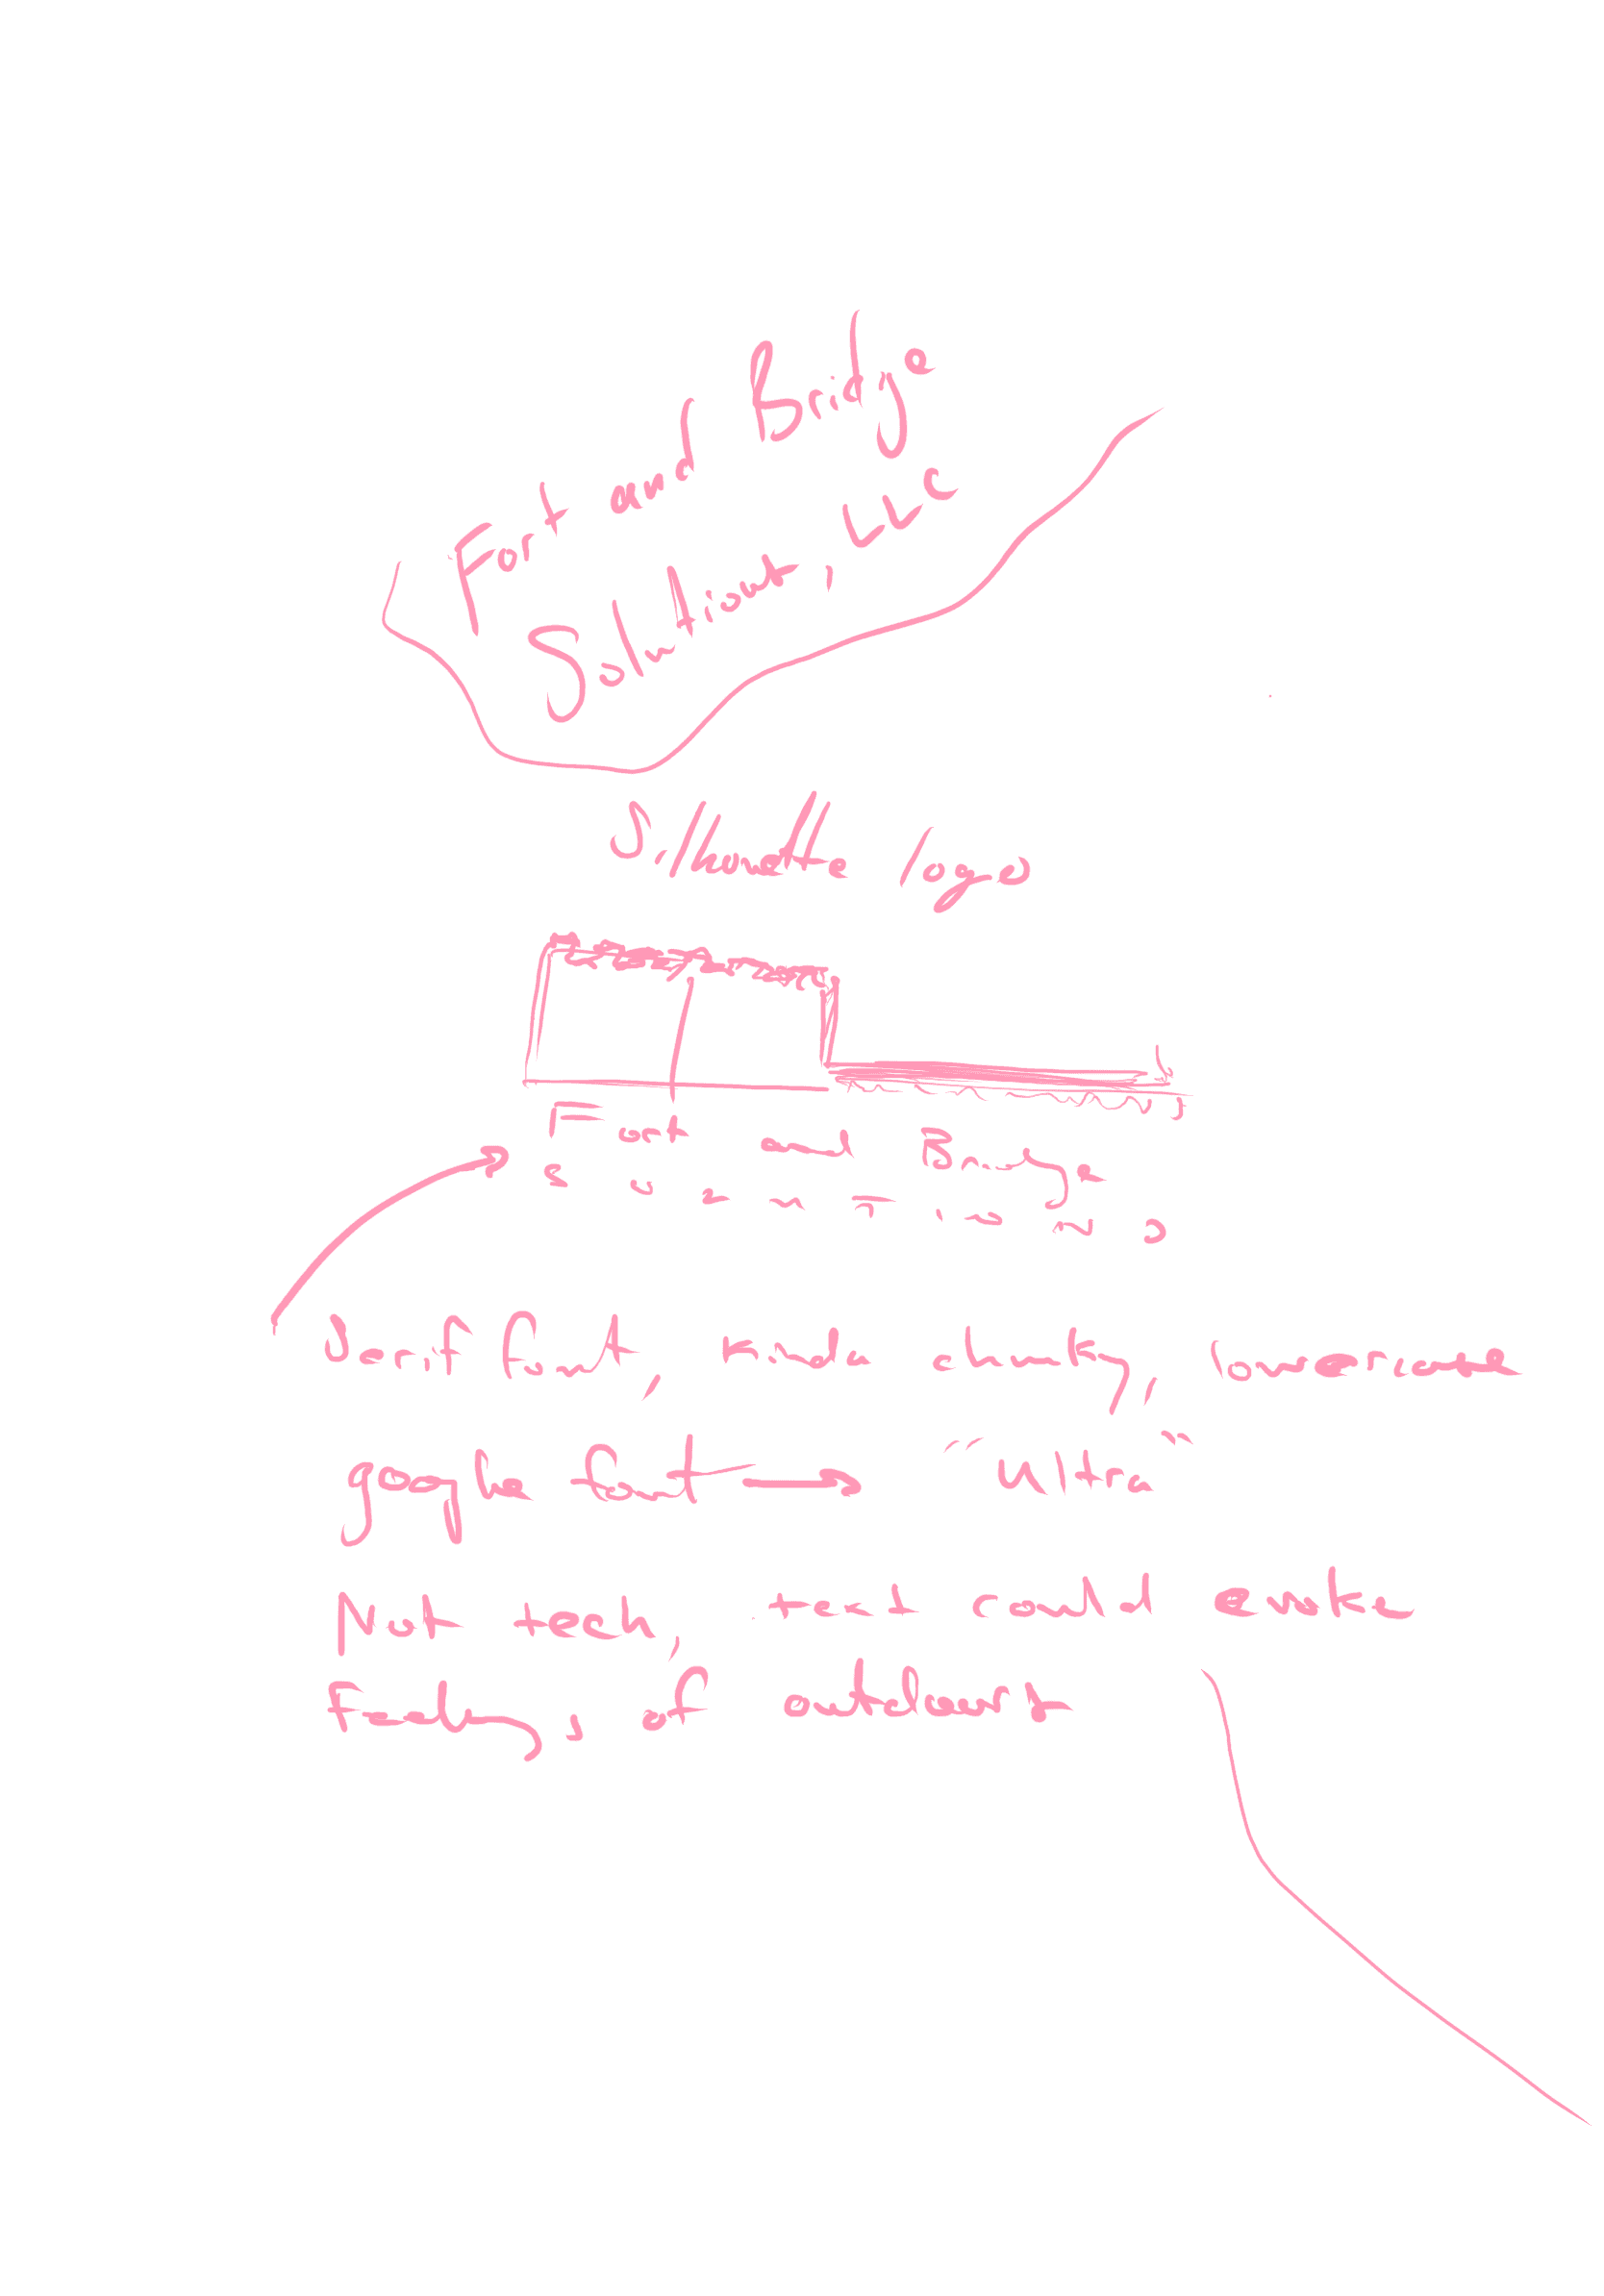 Fort and Bridge
Solutions, LLC
Silhouette logo
Fort and Bridge
S O L U T I O N S
Serif font, wide chunky, lowercase
google font → "Ultra"
Not tech, text could evoke
Feelings of outdoors